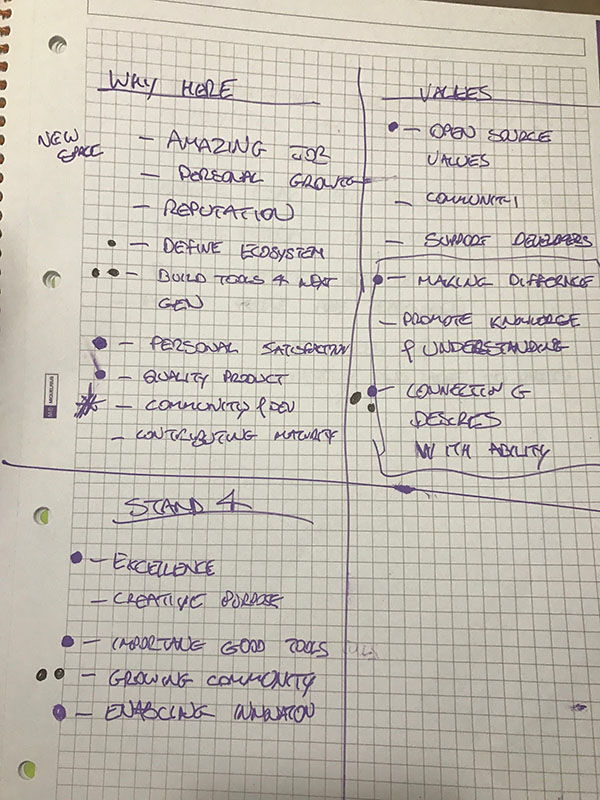 WHY HERE
NEW
SPACE
- AMAZING JOB
- PERSONAL GROWTH
- REPUTATION
- DEFINE ECOSYSTEM
- BUILD TOOLS 4 NEXT
GEN
- PERSONAL SATISFACTION
- QUALITY PRODUCT
- COMMUNITY & DEV
- CONTRIBUTING MATURITY
VALUES
- OPEN SOURCE
VALUES
- COMMUNITY
- SUPPORT DEVELOPERS
- MAKING DIFFERENCE
- PROMOTE KNOWLEDGE
& UNDERSTANDING
- CONNECTING
DESIRES
WITH ABILITY
STAND 4
- EXCELLENCE
- CREATIVE PURPOSE
- IMPORTANCE GOOD TOOLS
- GROWING COMMUNITY
- ENABLING INNOVATION
MIQUELRIUS